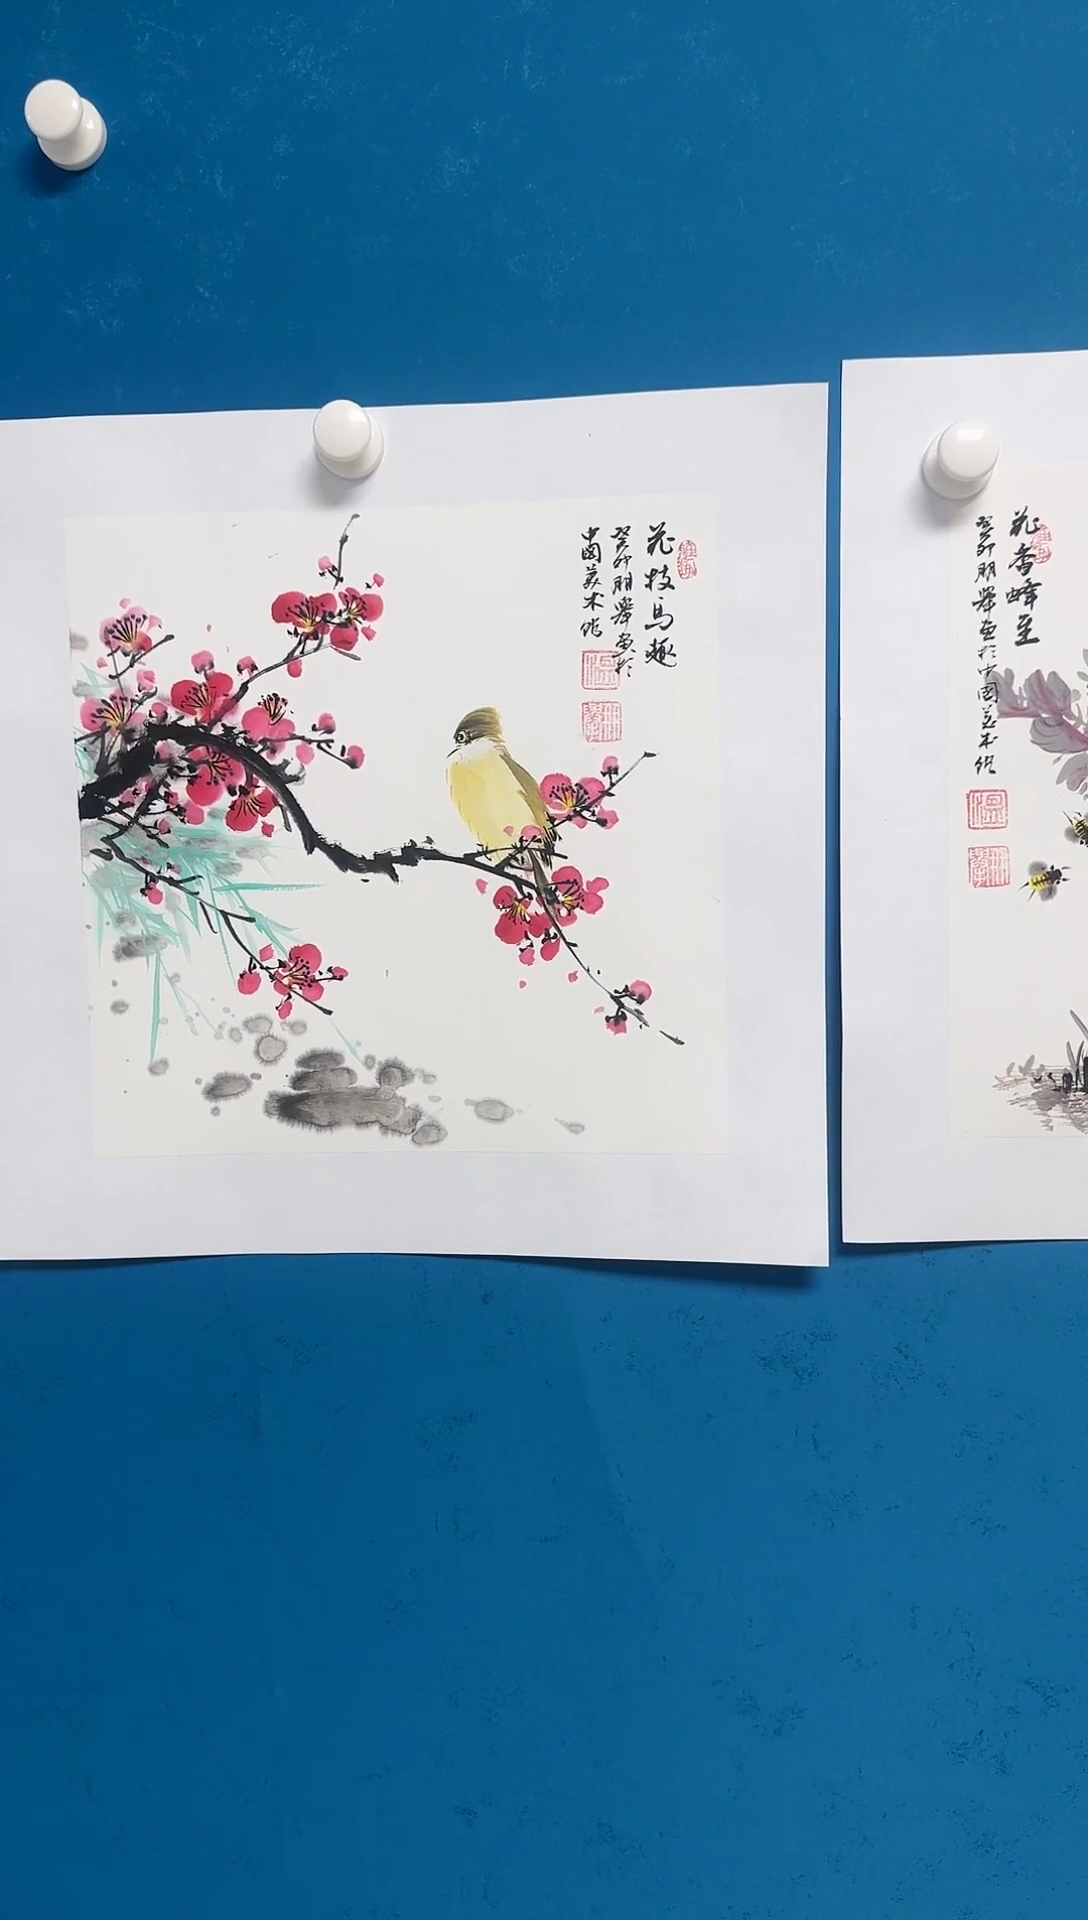 花枝鸟趣
癸卯朋舉画於
中國美术
花香蜂至
癸卯朋舉画於中国美术